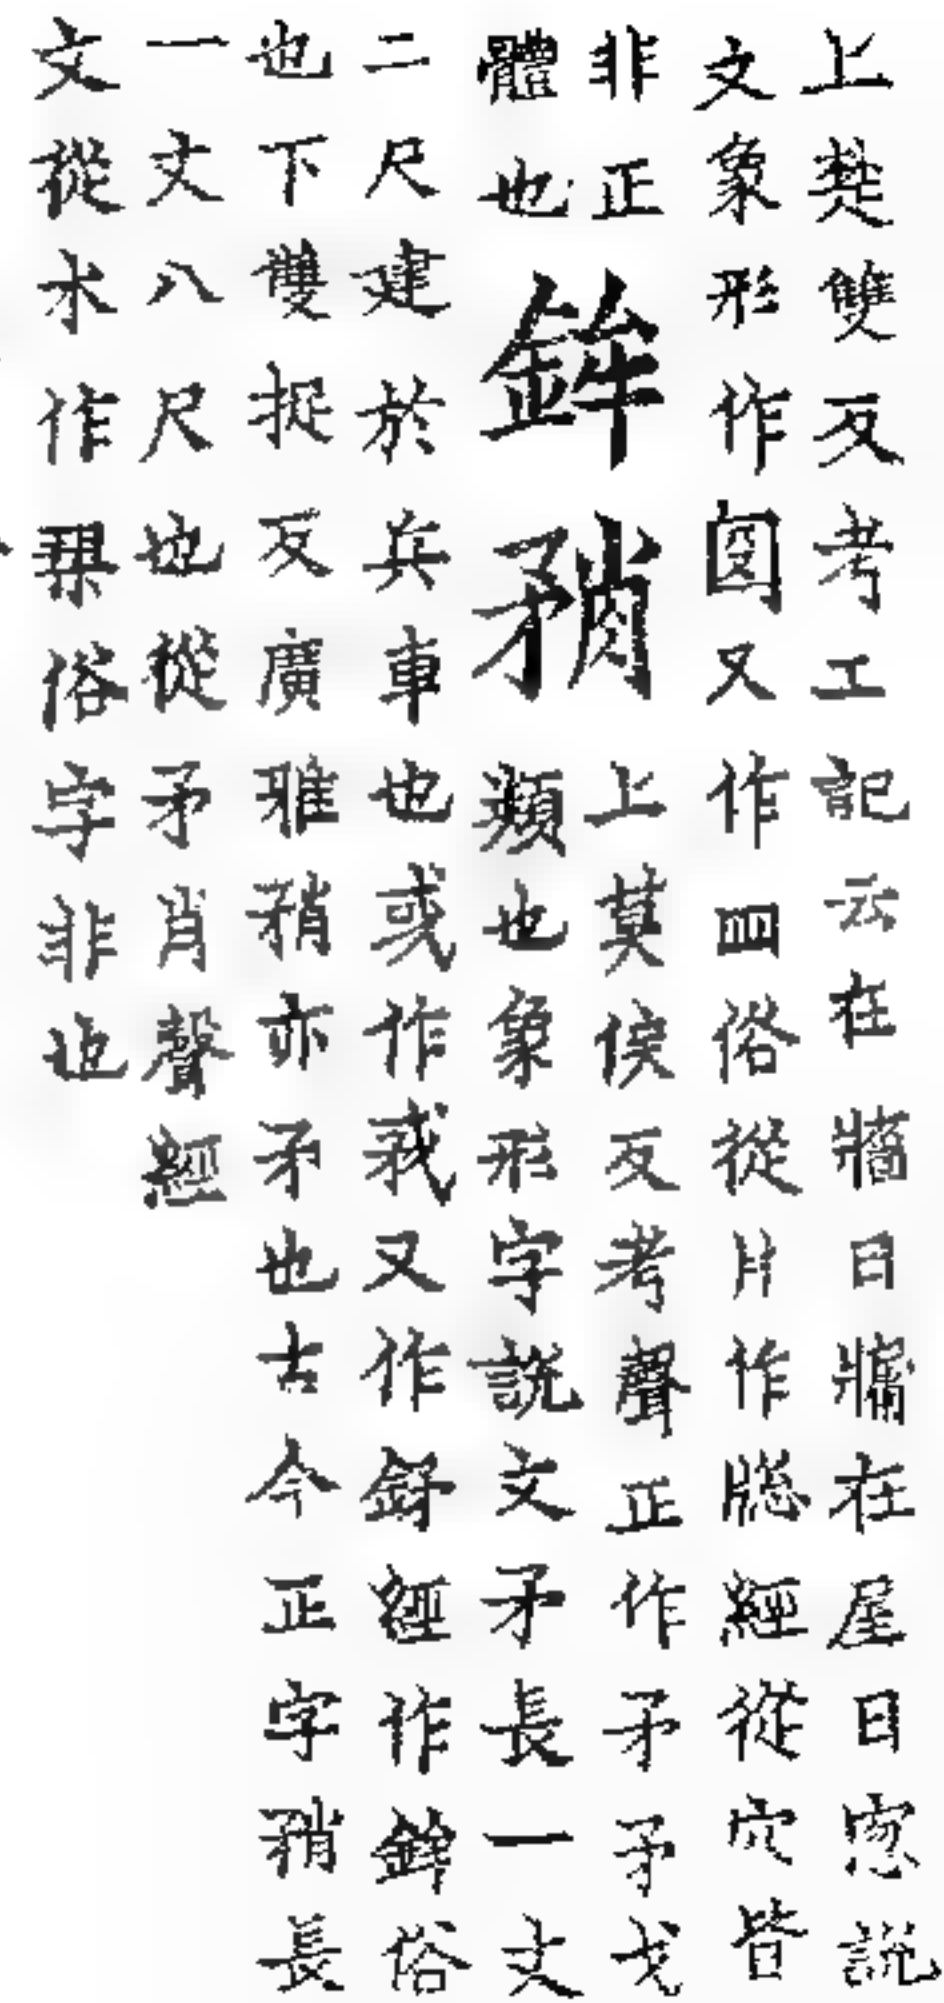 上楚雙反考工記云在牆曰牖在屋曰窓説
文象形作囪又作四俗從片作牕經從穴皆
非正
體也
鉾矟
上莫侯反考聲正作矛矛戈
類也象形字説文矛長一丈
二尺建於兵車也或作𢦧又作䥐經作鉾俗
也下雙捉反廣雅矟亦矛也古今正字矟長
一丈八尺也從矛肖聲經
文從木作槊俗字非也